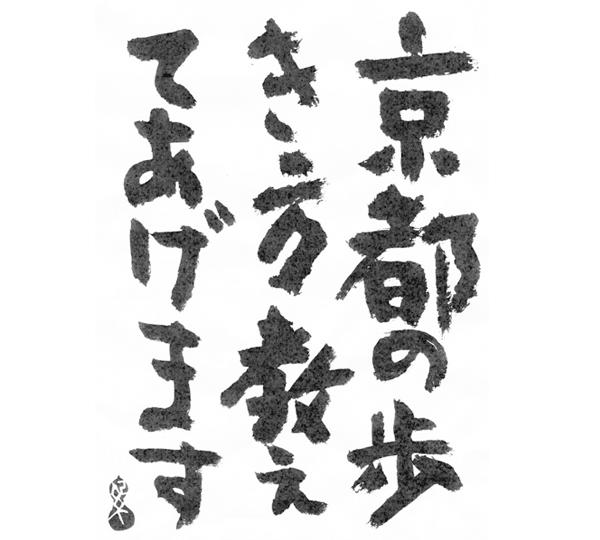 京都の歩
き方教え
てあげます